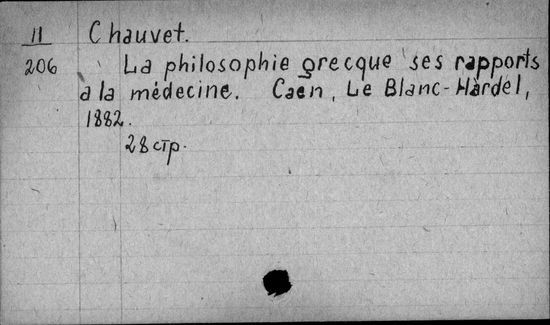 11 Chauvet.
206 La philosophie grecque ses rapports
a la médecine. Caen, Le Blanc-Hardel,
1882.
28 стр.